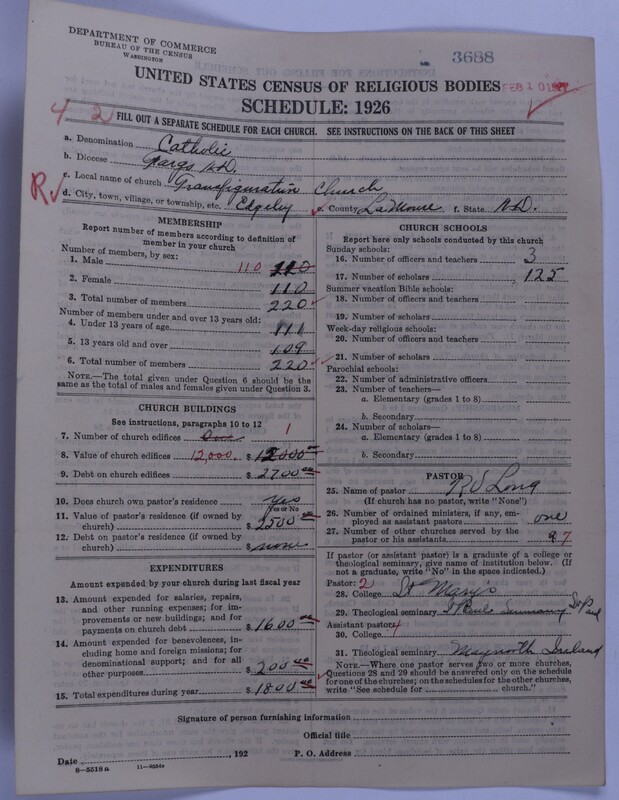 DEPARTMENT OF COMMERCE
BUREAU OF THE CENSUS
WASHINGTON
3688
UNITED STATES CENSUS OF RELIGIOUS BODIES
FEB 10 1927
SCHEDULE: 1926
4 2
FILL OUT A SEPARATE SCHEDULE FOR EACH CHURCH. SEE INSTRUCTIONS ON THE BACK OF THIS SHEET
a. Denomination Catholic
b. Diocese Fargo N.D.
c. Local name of church Transfiguration Church
R
d. City, town, village, or township, etc. Edgeley e. County La Moure f. State N.D.
MEMBERSHIP
Report number of members according to definition of member in your church
Number of members, by sex:
1. Male 110 110
2. Female 110
3. Total number of members 220
Number of members under and over 13 years old:
4. Under 13 years of age 111
5. 13 years old and over 109
6. Total number of members 220
NOTE.—The total given under Question 6 should be the
same as the total of males and females given under Question 3.
CHURCH BUILDINGS
See instructions, paragraphs 10 to 12
7. Number of church edifices One 1
8. Value of church edifices 12,000. $ 12000 00
9. Debt on church edifices $ 2700 00
10. Does church own pastor's residence Yes
Yes or No
11. Value of pastor's residence (if owned by
church) $ 2500 00
12. Debt on pastor's residence (if owned by
church) $ none
EXPENDITURES
Amount expended by your church during last fiscal year
13. Amount expended for salaries, repairs,
and other running expenses; for im-
provements or new buildings; and for
payments on church debt $ 1600 00
14. Amount expended for benevolences, in-
cluding home and foreign missions; for
denominational support; and for all
other purposes $ 200 00
15. Total expenditures during year $ 1800 00
CHURCH SCHOOLS
Report here only schools conducted by this church
Sunday schools:
16. Number of officers and teachers 3
17. Number of scholars 125
Summer vacation Bible schools:
18. Number of officers and teachers
19. Number of scholars
Week-day religious schools:
20. Number of officers and teachers
21. Number of scholars
Parochial schools:
22. Number of administrative officers
23. Number of teachers—
a. Elementary (grades 1 to 8)
b. Secondary
24. Number of scholars—
a. Elementary (grades 1 to 8)
b. Secondary
PASTOR
25. Name of pastor Long
(If church has no pastor, write "None")
26. Number of ordained ministers, if any, em-
ployed as assistant pastors one
27. Number of other churches served by the
pastor or his assistants 7
If pastor (or assistant pastor) is a graduate of a college or
theological seminary, give name of institution below. (If
not a graduate, write "No" in the space indicated.)
Pastor: 2
28. College St Mary's
29. Theological seminary St Pauls Seminary St Paul
Assistant pastor: 4
30. College
31. Theological seminary Maynooth Ireland
NOTE.—Where one pastor serves two or more churches,
Questions 28 and 29 should be answered only on the schedule
for one of the churches; on the schedules for the other churches,
write "See schedule for church."
Signature of person furnishing information
Official title
Date , 192 P. O. Address
8—5518 a